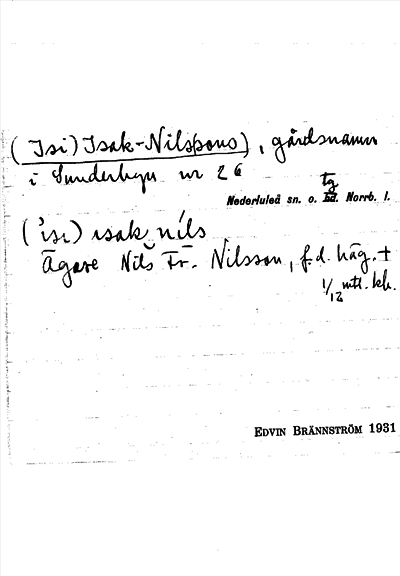 (Isi) Isak-Nils(sons), gårdsnamn
i Sunderbyn nr 26
tg
Nederluleå sn. o. hd. Norrb. l.
('isi) isak nils
Ägare Nils Fr. Nilsson, f.d. häg. +
1/12 mtl. kr.
EDVIN BRÄNNSTRÖM 1931